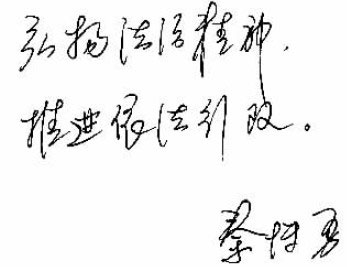 弘扬法治精神，
推进依法行政。